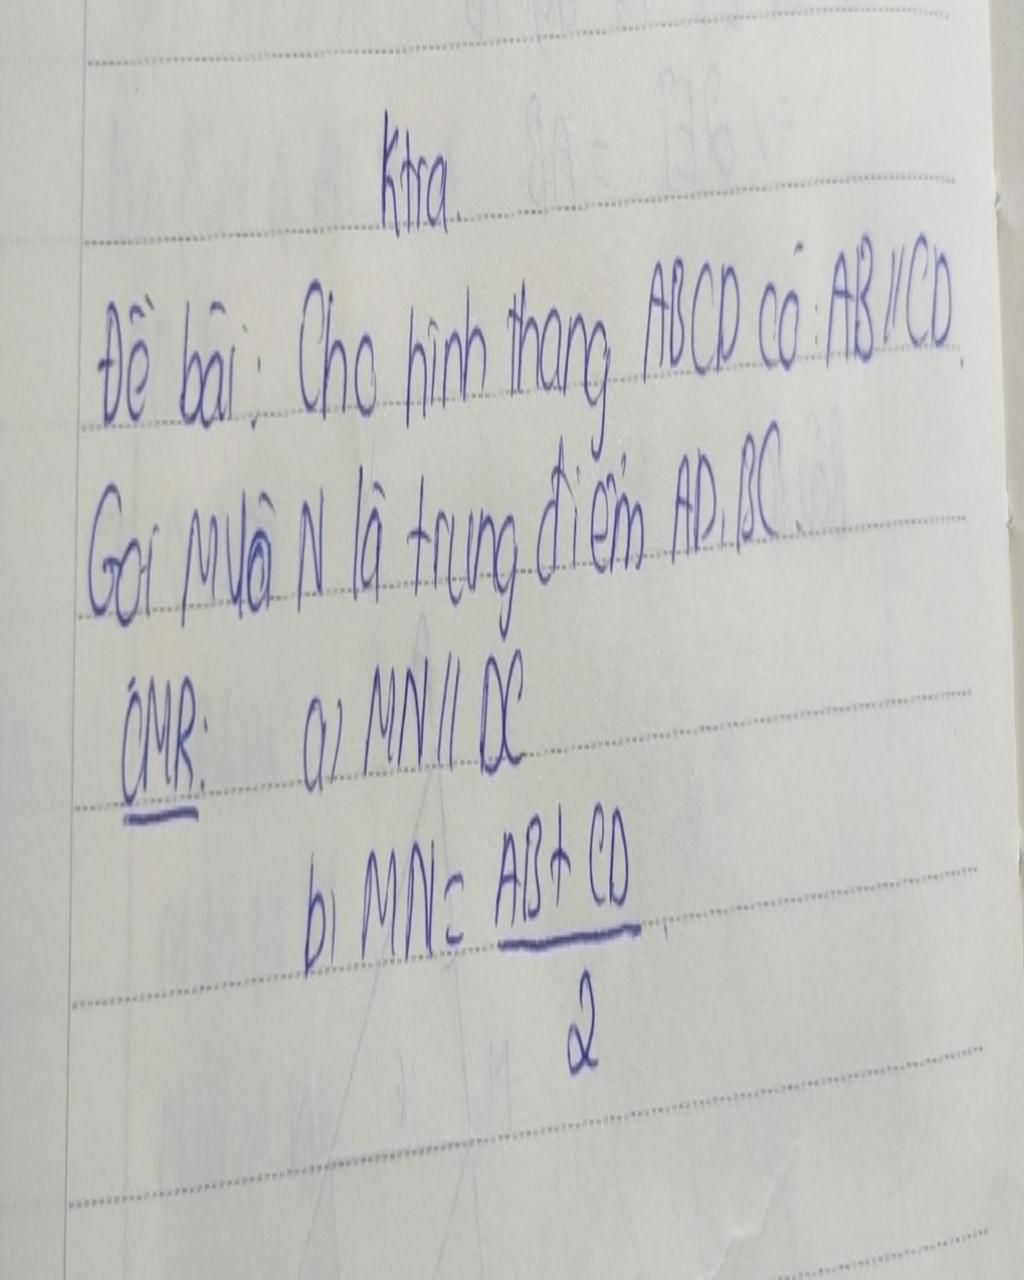 Ktra.
Đề bài: Cho hình thang ABCD có: AB//CD.
Gọi M và N là trung điểm AD, BC.
CMR: a) MN // DC
b) MN = AB + CD
2